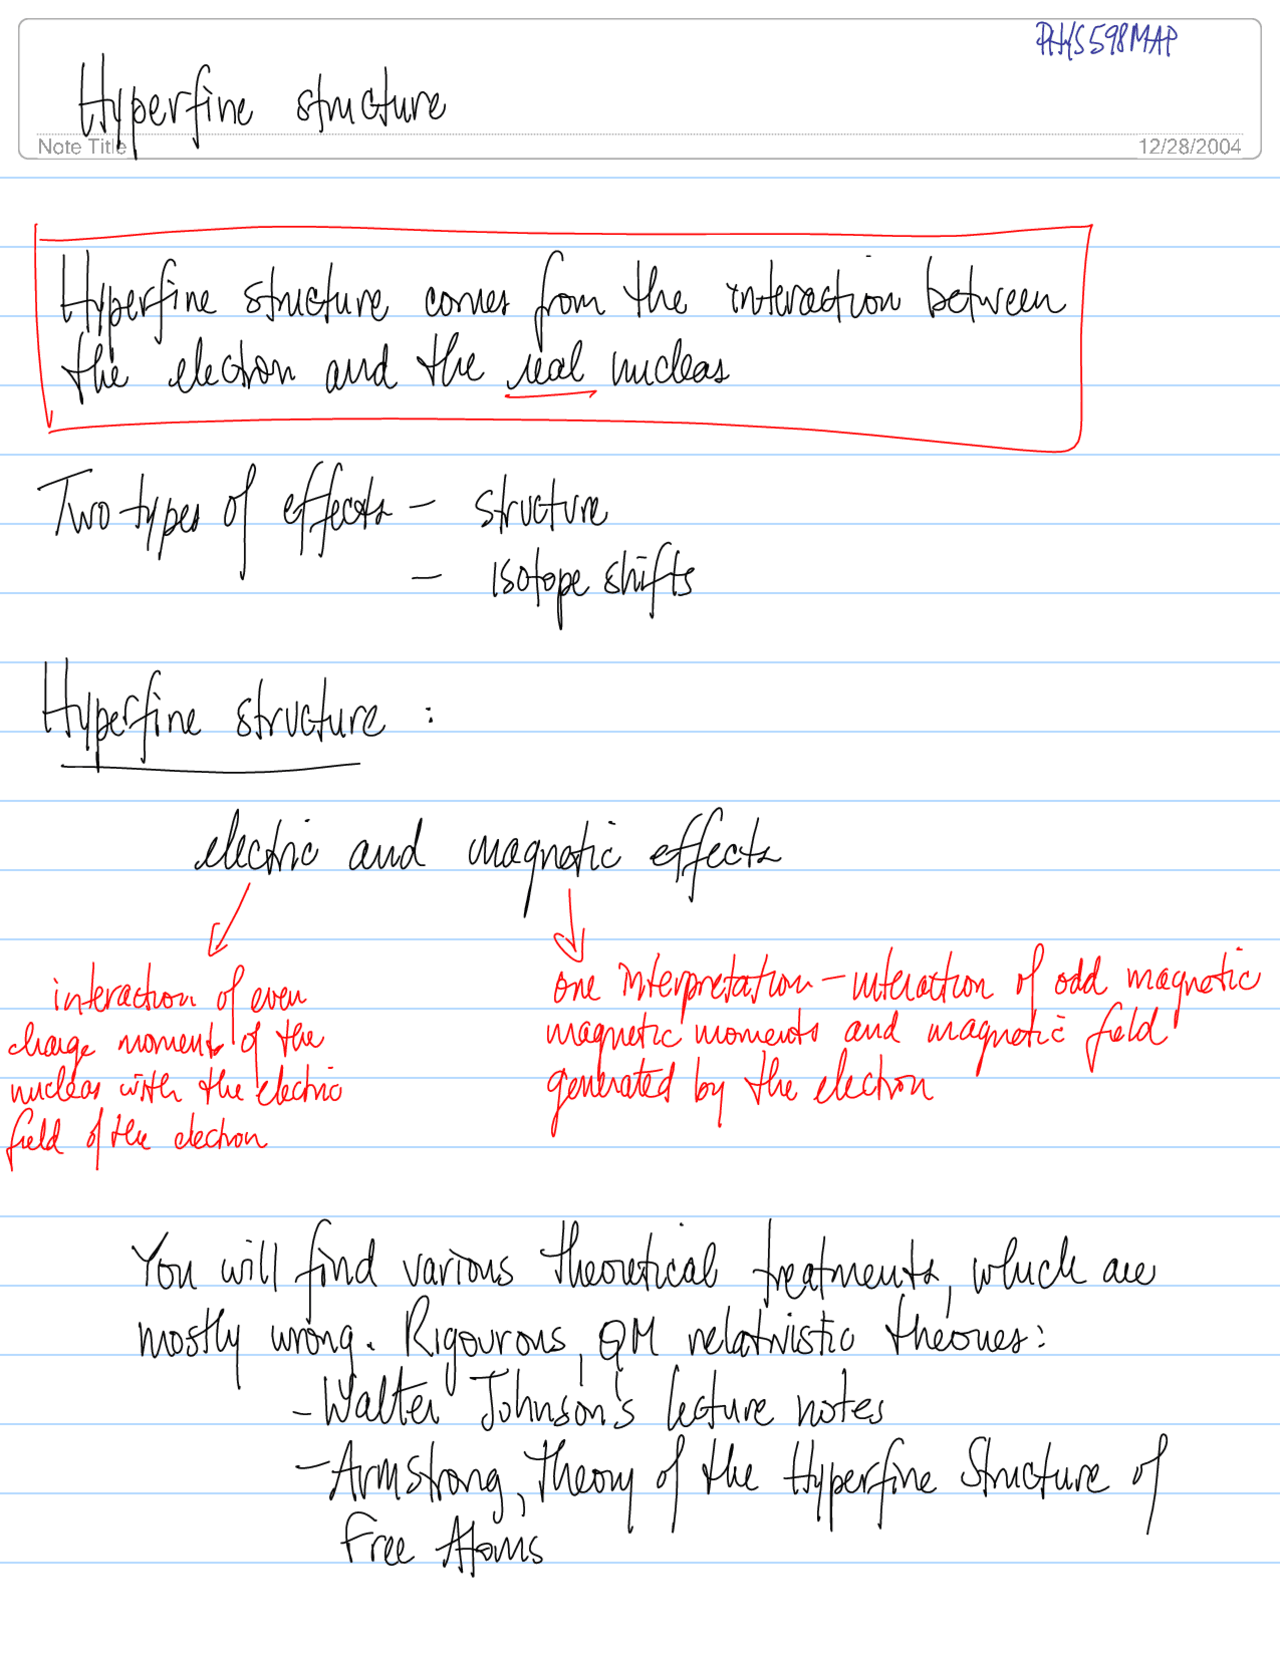 PHYS598MAP
Hyperfine structure
Note Title
12/28/2004
Hyperfine structure comes from the interaction between
the electron and the real nucleas
Two types of effects - structure
- isotope shifts
Hyperfine structure :
electric and magnetic effects
interaction of even
charge moments of the
nucleas with the electric
field of the electron
one interpretation - interaction of odd magnetic
magnetic moments and magnetic field
generated by the electron
You will find various theoretical treatments, which are
mostly wrong. Rigourous, QM relativistic theories:
- Walter Johnson's lecture notes
- Armstrong, Theory of the Hyperfine Structure of
Free Atoms